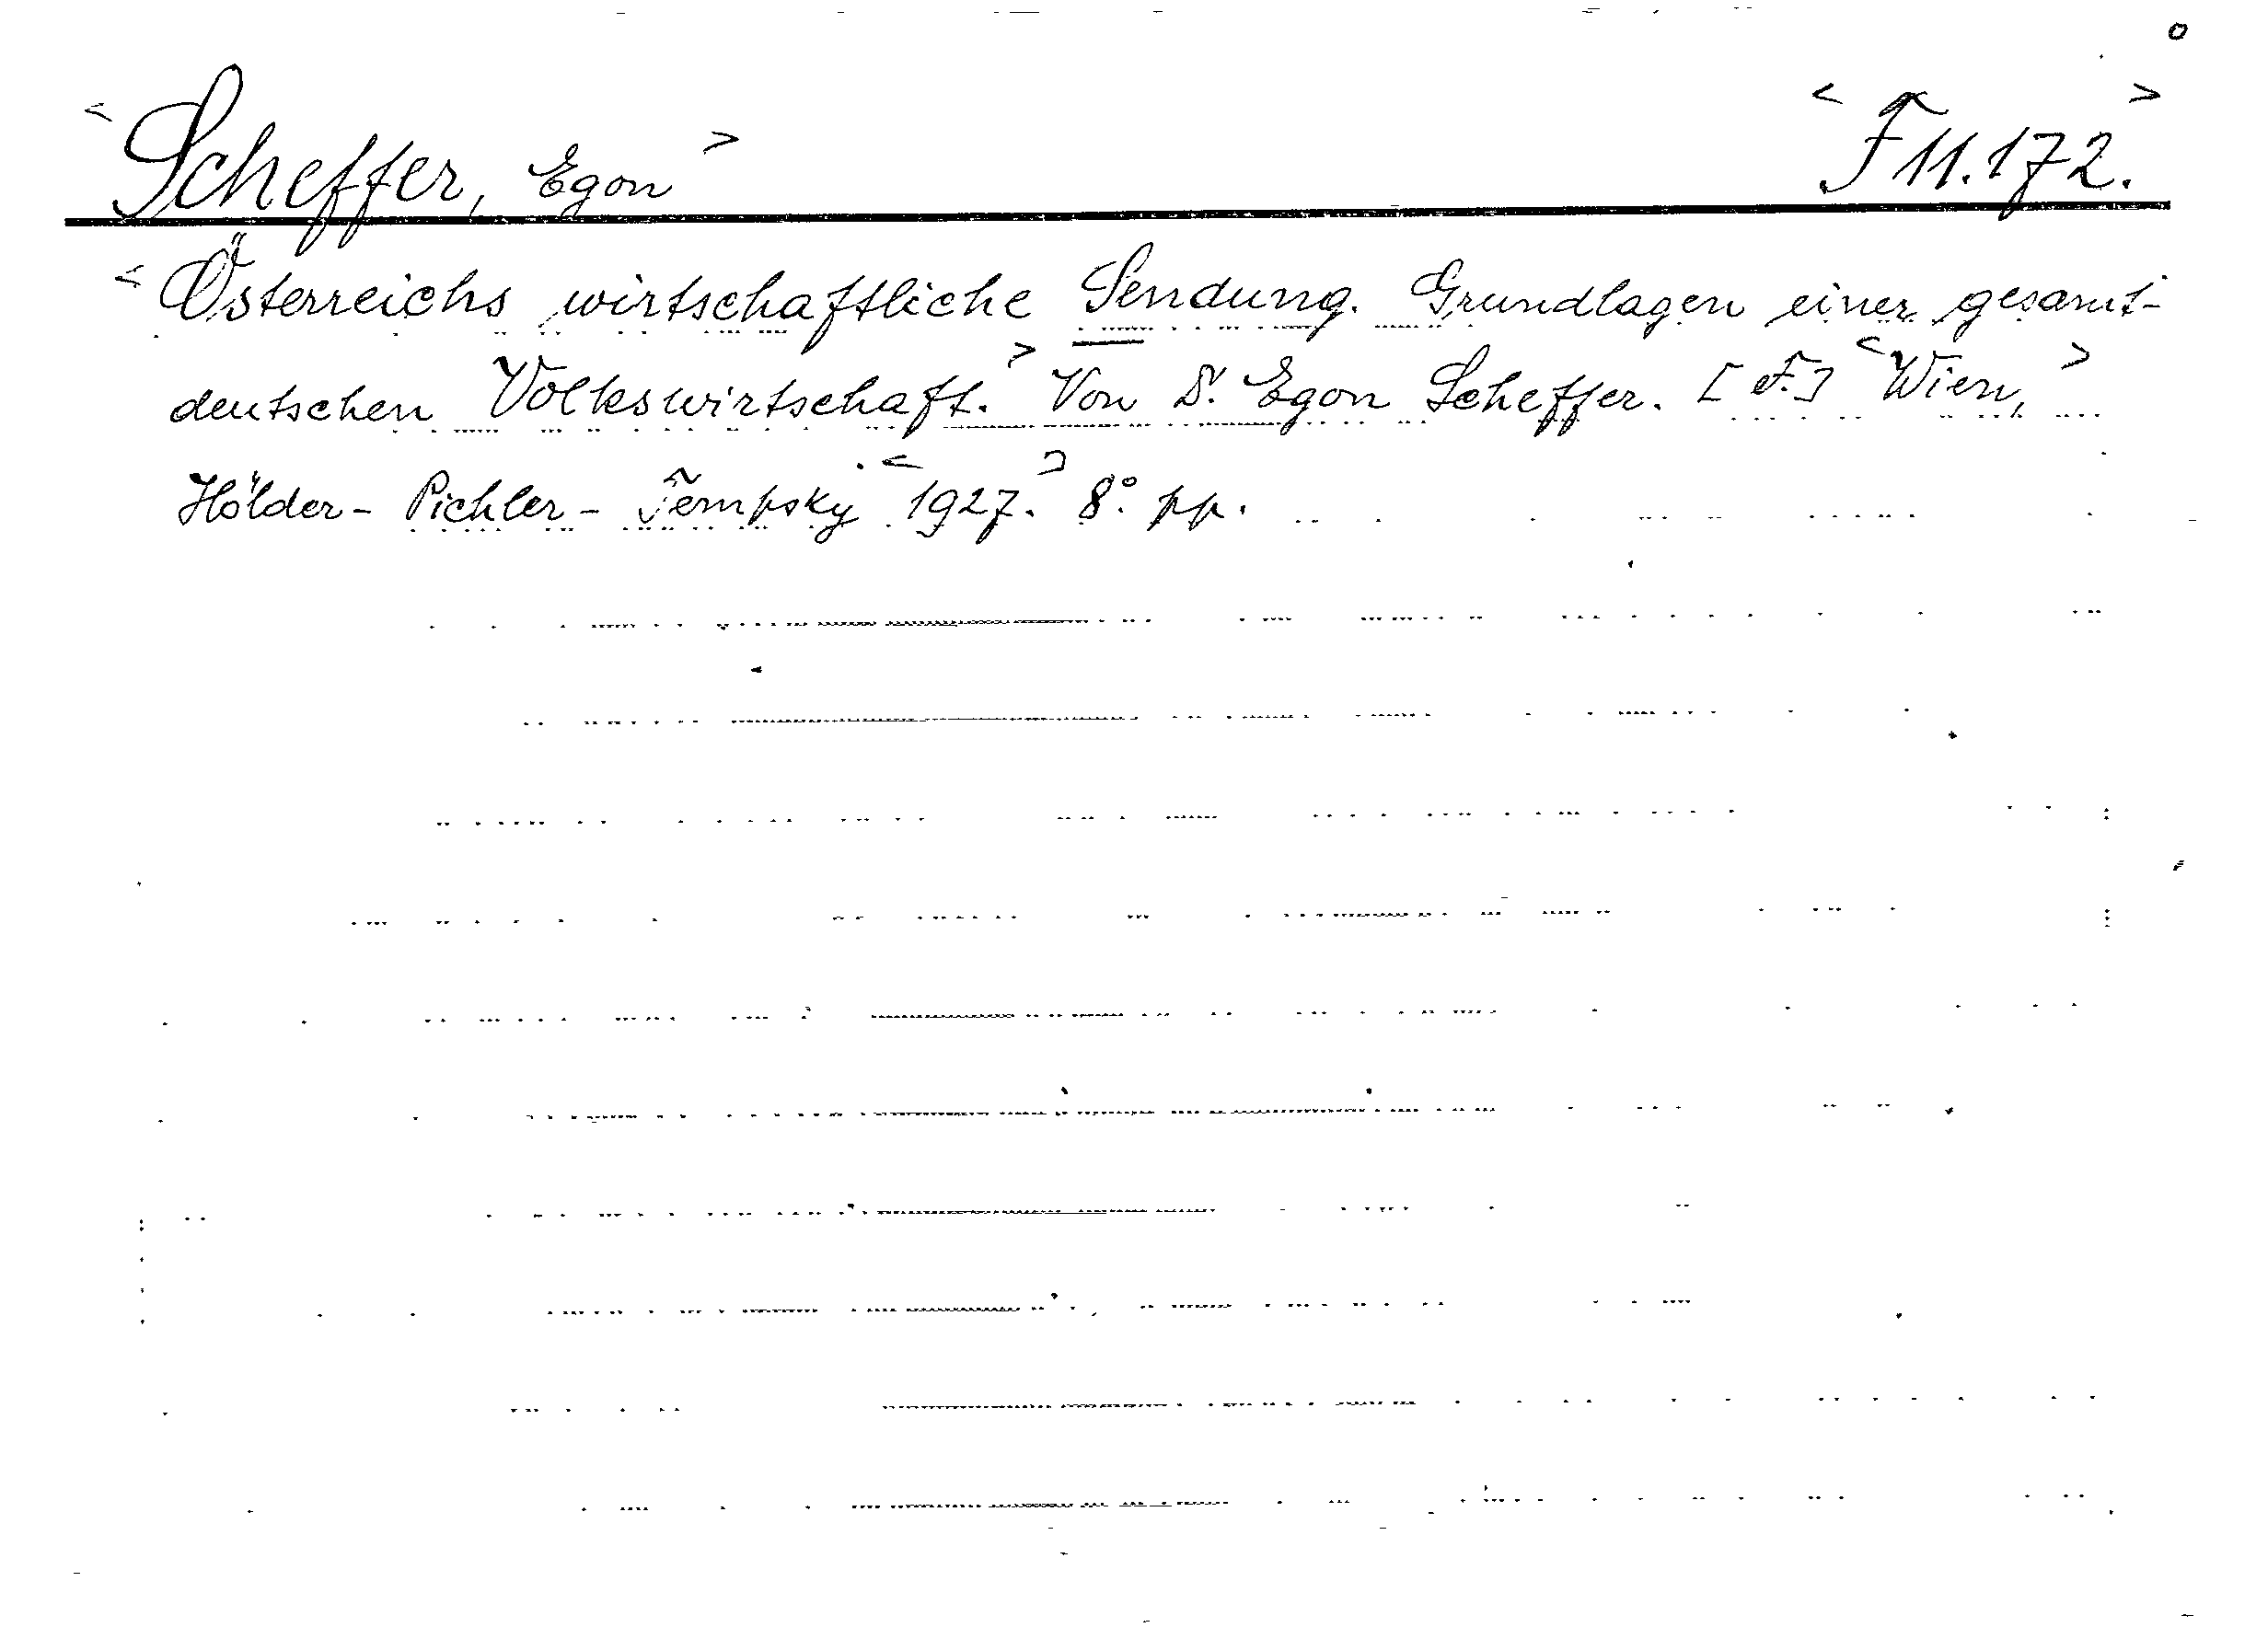 <Scheffer, Egon> <F 11.172.>
<Österreichs wirtschaftliche Sendung. Grundlagen einer gesamt-
deutschen Volkswirtschaft.> Von Dr. Egon Scheffer. [F.] <Wien,>
Hölder - Pichler - Tempsky <1927.> 8°. pp.